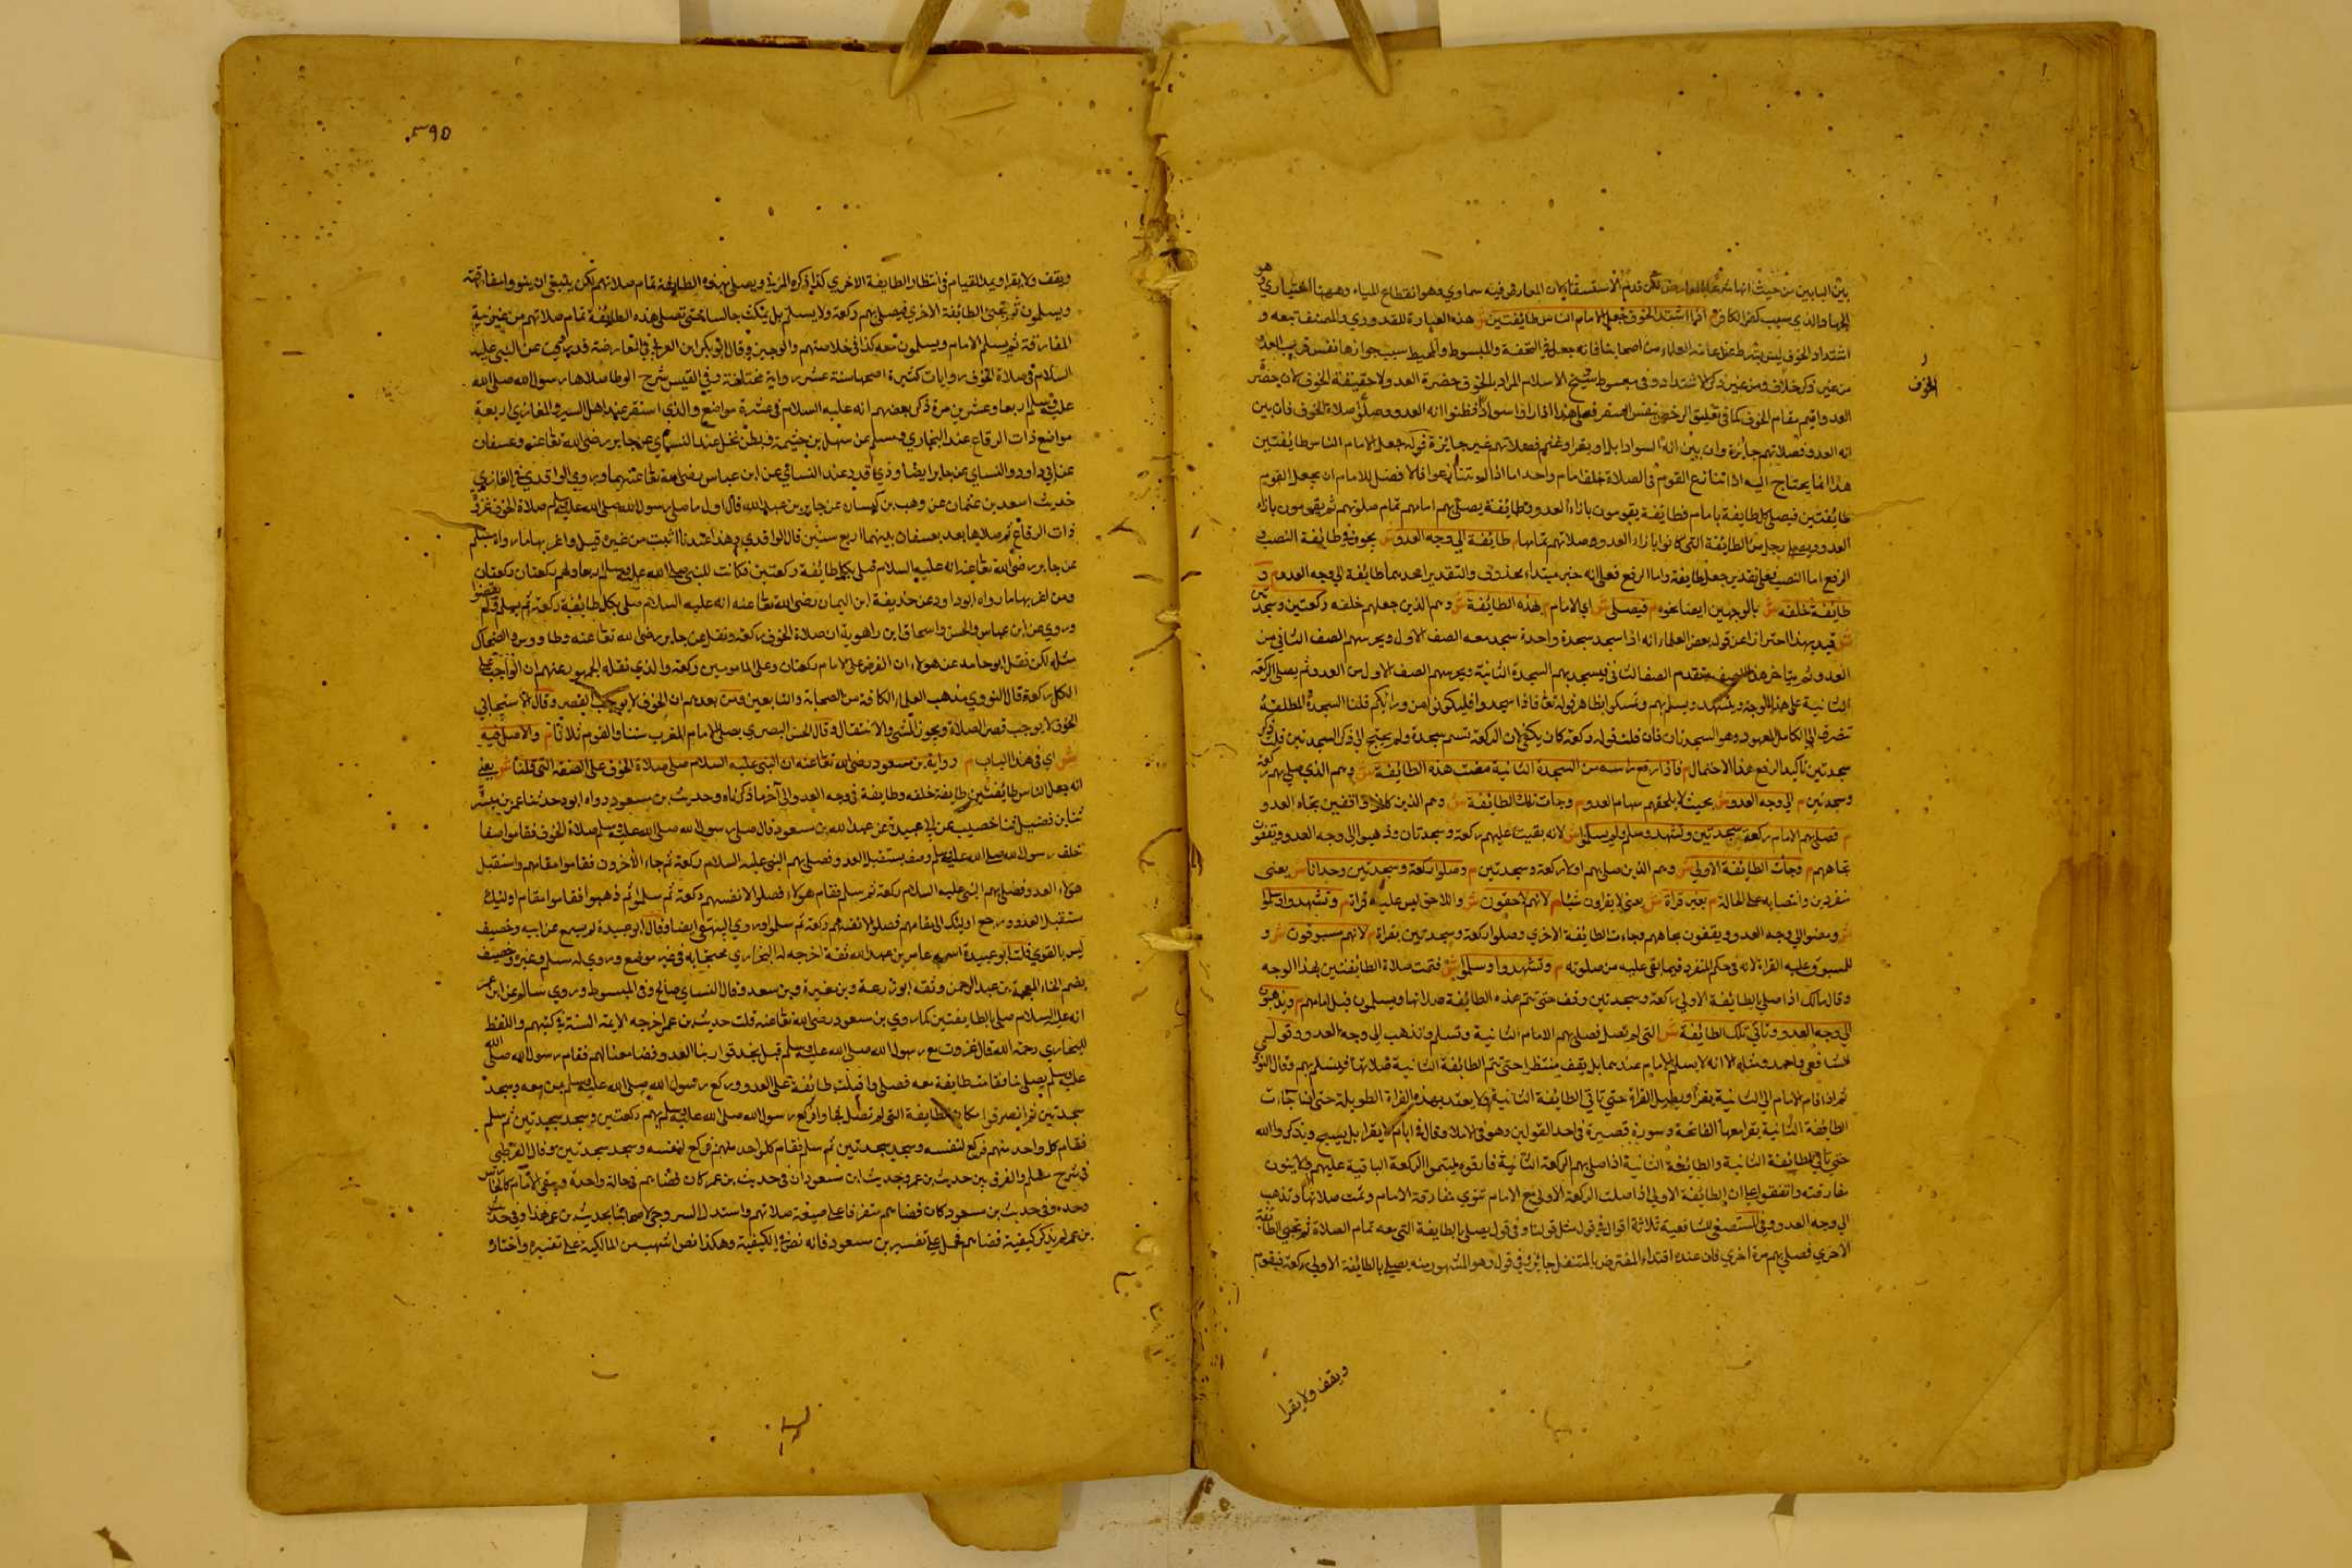 بين البابين من حيث انهما شرعا بالعارض لكن قدم الاستسقاء لان العارض فيه سماوي وهو انقطاع المياه وههنا اختياري وهو
الجهاد الذي سبب كفر الكافر م اذا اشتد الخوف جعل الامام الناس طائفتين ش هذه العبارة للقدوري والمصنف تبعه و
اشتداد الخوف ليس بشرط عند عامة العلماء من اصحابنا فانه جعل في التحفة والمبسوط والمحيط سبب جوازها نفس قرب العدو
من غير ذكر خلاف ومن غير ذكر الاشتداد وفى مبسوط شيخ الاسلام المراد بالخوف حضرة العدو لا حقيقة الخوف لان حضر
الخوف
العدو اقيم مقام الخوف كما في تعليق الرخص بنفس السفر فعلى هذا اذا راوا سوادا فظنوا انه العدو وصلوا صلاة الخوف فان بين
انه العدو فصلاتهم جائزة وان بين انه السواد ابلا او بقر او غنم فصلاتهم غير جايزة قوله جعل الامام الناس طايفتين
هذا انما يحتاج اليه اذا تنازع القوم في الصلاة خلف امام واحد اما اذا لم يتنازعوا فالافضل للامام ان يجعل القوم
طائفتين فيصلي كل طايفة بامام فطايفة يقومون بازاء العدو وطائفة يصلي بهم امامهم تمام صلوتهم ثم يقومون بازاء
العدو ويصلى رجل من الطائفة التي كانوا بازاء العدو صلاتهم تمامها م طائفة الي وجه العدو ش يجوز في طائفة النصب و
الرفع اما النصب فعلي تقدير جعل طايفة واما الرفع فعلي انه خبر مبتداء محذوف والتقدير احديهما طائفة الي وجه العدو م و
طائفة خلفه ش بالوجهين ايضا نحوه م فيصلي ش اي الامام م بهذه الطائفة ش وهم الذين جعلهم خلفه ركعتين وسجدتين
ش قيد بهذا احترازا عن قول بعض العلماء انه اذا سجد سجدة واحدة سجد معه الصف الاول ويحرسهم الصف الثاني من
العدو ثم يتاخر هذا الصف ويتقدم الصف الثاني فيسجد بهم السجدة الثانية ويحرسهم الصف الاول من العدو ثم يصلي الركعة
الثانية على هذا الوجه ويتشهد ويسلم بهم وتمسكوا بظاهر قوله تعالى فاذا سجدوا فليكونوا من ورائكم قلنا السجدة المطلقة
تصرف الي الكامل المعهود وهو السجدتان فان قلت قوله ركعة كان يكفي لان الركعة تتم بسجدة ولم يحتج الي ذكر السجدتين قلت ذكر
سجدتين تاكيدا لرفع هذا الاحتمال م فاذا رفع راسه من السجدة الثانية مضت هذه الطائفة ش وهم الذي صلي بهم ركعة
وسجدتين م الي وجه العدو ش بحيث لا يلحقهم سهام العدو م وجاءت تلك الطائفة ش وهم الذين كانوا واقفين تجاه العدو
م فصلي بهم الامام ركعة وسجدتين وتشهد وسلم ولم يسلموا ش لانه بقيت عليهم ركعة وسجدتان وذهبوا الي وجه العدو ويقفون
تجاههم م وجاءت الطائفة الاولي ش وهم الذين صلي بهم اولا ركعة وسجدتين م وصلوا ركعة وسجدتين وحدانا ش يعني
منفردين وانتصابه على الحالة م بغير قراة ش يعني لا يقراون شيئا م لانهم لاحقون ش واللاحق ليس عليه قراة م وتشهدوا وسلموا
ش ومضوا الي وجه العدو ويقفون تجاههم وجاءت الطائفة الاخري وصلوا ركعة وسجدتين بقراة م لانهم مسبوقون ش و
المسبوق عليه القراة لانه في حكم المنفرد فيما بقي عليه من صلوته م وتشهدوا وسلموا ش فتمت صلاة الطائفتين بهذا الوجه
وقال مالك اذا صلي بالطايفة الاولي ركعة وسجدتين وقف حتى تتم هذه الطايفة صلاتها ويسلمون قبل امامهم م ويذهبون
الي وجه العدو وتاتي تلك الطائفة ش التي لم تصل فصلي بهم الامام الثانية وتسلم وتذهب الي وجه العدو وقول
الشافعي واحمد مثله الا انه لا يسلم الامام عندهما بل يقف منتظرا حتى تتم الطائفة الثانية صلاتها فيسلم بهم وقال النووي
ثم اذا قام الامام الي الثانية يقرا ويطيل القراة حتي تاتي الطايفة الثانية
الطايفة الثانية يقرا معها الفاتحة وسورة قصيرة في احد القولين وهو في الاملاء وقال في الام لا يقرا بل يسبح ويذكر الله
حتي تاتي الطائفة الثانية والطايفة الثانية اذا صلي بهم الركعة الثانية فارقوه ليتموا الركعة الباقية عليهم ولا ينوون
مفارقته واتفقوا علي ان الطايفة الاولي اذا صلت الركعة الاولي مع الامام تنوي مفارقة الامام وتمت صلاتها وتذهب
الي وجه العدو وفي المستصفي للشافعية ثلاثة اقوال في قول مثل قولنا وفي قول يصلي بالطايفة التي معه تمام الصلاة ثم تجيئ الطائفة
الاخري فصلي بهم مرة اخري فان عنده اقتداء المفترض بالمتنفل جائز وفي قول وهو المشهور منه يصلي بالطائفة الاولي ركعة فيقوم
ويقف ولا يقرا
٥٩٥
ويقف ولا يقرا ويمد القيام في انتظار الطايفة الاخري كذا ذكره المزني ويصلي بهذه الطايفة تمام صلاتهم لكن ينبغي ان ينووا مفارقته
ويسلمون ثم تجئ الطائفة الاخري فيصلي بهم ركعة ولا يسلم بل يمكث جالسا حتى تصلي هذه الطائفة تمام صلاتهم من غير نية
المفارقة ثم يسلم الامام ويسلمون معه كذا في خلاصتهم والوجيز وقال ابو بكر ابن العربي في العارضة قد صحت عن النبي عليه
السلام في صلاة الخوف روايات كثيرة اصحها ستة عشر رواية مختلفة وفي القبس شرح الموطا صلاها رسول الله صلى الله
عليه وسلم اربعا وعشرين مرة ذكر بعضهم انه عليه السلام في عشرة مواضع والذي استقر عند اهل السير والمغازي اربعة
مواضع ذات الرقاع عند البخاري ومسلم عن سهل بن حثمة وبطن نخل عند النسائي عن جابر رضى الله تعا عنه وعسفان
عند ابي داود والنساي عن جابر ايضا وذي قرد عند النسائي عن ابن عباس رضى الله تعا عنهما وروي الواقدي في المغازي
حديث اسعد بن عثمان عن وهب بن كيسان عن جابر بن عبد الله قال اول ما صلى رسول الله صلى الله عليه وسلم صلاة الخوف في غزوة
ذات الرقاع ثم صلاها بعد بعسفان بينهما اربع سنين قال الواقدي وهذا عندنا اثبت من غيره قيل واغربها ما رواه مسلم
عن جابر رضى الله تعا عنه انه عليه السلام صلى بكل طائفة ركعتين فكانت للنبي صلى الله عليه وسلم اربعا ولهم ركعتان ركعتان
ومن اغربها ما رواه ابو داود عن حذيفة ابن اليمان رضى الله تعا عنه انه عليه السلام صلى بكل طائفة ركعة ثم سلم ولم يقضوا
وروي عن ابن عباس والحسن واسحاق ابن راهوية ان صلاة الخوف ركعة ونقل عن جابر رضى الله تعا عنه وطاووس والضحاك
مثله لكن نقل ابو حامد عن هولاء ان الفرض على الامام ركعتان وعلى المامومين ركعة والذي نقله الجمهور عنهم ان الواجب على
الكل ركعة قال النووي مذهب العلماء كافة من الصحابة والتابعين ومن بعدهم ان الخوف لا يوجب القصر وقال الاسبيجابي
الخوف لا يوجب قصر الصلاة ويجوز المشي والانتقال وقال الحسن البصري يصلي الامام المغرب ستا والقوم ثلاثا م والاصل فيه
ش اي في هذا الباب م رواية بن مسعود رضى الله تعا عنه ان النبي عليه السلام صلى صلاة الخوف على الصفة التى قلنا ش يعني
انه جعل الناس طائفتين طايفة خلفه وطايفة في وجه العدو الى آخر ما ذكرناه وحديث بن مسعود رواه ابو داود حدثنا عمران بن ميسرة
ثنا ابن فضيل ثنا خصيف عن ابي عبيدة عن عبد الله بن مسعود قال صلى رسول الله صلى الله عليه وسلم صلاة الخوف فقاموا صفا
خلف رسول الله صلى الله عليه وسلم وصف مستقبل العدو فصلى بهم النبى عليه السلام ركعة ثم جاء الآخرون فقاموا مقامهم واستقبل
هولاء العدو فصلى بهم النبى عليه السلام ركعة ثم سلم فقام هولاء فصلوا لانفسهم ركعة ثم سلموا ثم ذهبوا فقاموا مقام اولئك
مستقبل العدو ورجع اولئك الى مقامهم فصلوا لانفسهم ركعة ثم سلموا وروي البيهقي ايضا وقال ابو عبيدة لم يسمع عن ابيه وخصيف
ليس بالقوي قلت ابو عبيدة اسمه عامر بن عبد الله ثقة اخرجه له البخاري محتجا به في غير موضع وروي له مسلم وغيره وخصيف
بضم الخاء المعجمة بن عبد الرحمن وثقه ابو زرعة وبن معين وبن سعد وقال النساي صالح وفى المبسوط وروي سالم عن ابن عمر
انه عليه السلام صلى بالطايفتين كما روي بن مسعود رضى الله تعا عنه قلت حديث بن عمر اخرجه الايمة الستة في كتبهم واللفظ
للبخاري رحمه الله قال غزوت مع رسول الله صلى الله عليه وسلم قبل نجد فوازينا العدو فصاففنا لهم فقام رسول الله صلى الله
عليه وسلم يصلي بنا فقامت طايفة معه فصلى واقبلت طائفة على العدو وركع رسول الله صلى الله عليه وسلم بمن معه وسجد
سجدتين ثم انصرفوا مكان الطايفة التي لم تصل فجاوا فركع رسول الله صلى الله عليه وسلم بهم ركعتين وسجد سجدتين ثم سلم
فقام كل واحد منهم فركع لنفسه وسجد سجدتين ثم سلم فقام كل واحد منهم فركع لنفسه وسجد سجدتين وقال القرطبي
في شرح مسلم والفرق بين حديث بن عمر وحديث ابن مسعود ان في حديث بن عمر كان قضاءهم في حالة واحدة ويبقى الامام كالحارس
وحده وفى حديث بن مسعود كان قضاءهم متفرقا على صيغة صلاتهم واستدل السروجي لاصحابنا بحديث بن عمر هذا وفى حديث
بن عمر لم يذكر كيفية قضاءهم فحمل على تفسير بن مسعود فانه نص في الكيفية وهكذا نص اشهب من المالكية على تفسيره واختار